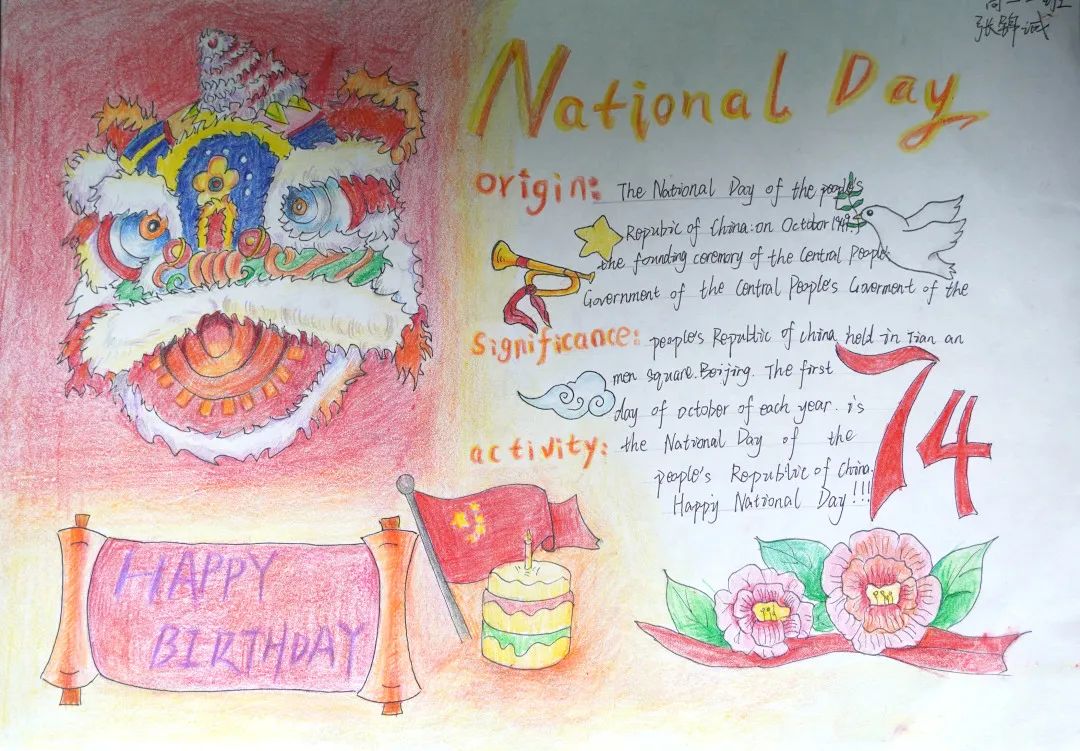 张锦诚
National Day
origin: The National Day of the people's
Republic of China:on October 1949.
the founding ceremony of the Central People
Government of the Central People's Goverment of the
Significance: people's Republic of China held in Tian an
men square.Beijing. The first
day of october of each year. is
activity: the National Day of the
people's Republic of China.
Happy National Day!!!
74
HAPPY
BIRTHDAY